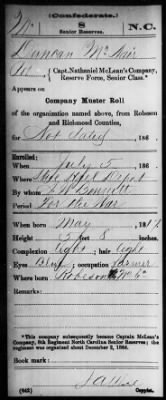 (Confederate.)
Mc 8 N.C.
Senior Reserves.
Duncan McNair
Capt. Nathaniel McLean's Company, Reserve Force, Senior Class.*
Appears on
Company Muster Roll
of the organization named above, from Robeson and Richmond Counties,
for Not dated, 186
Enrolled:
When July 5, 186
Where
By whom
Period For the War
When born May, 181
Height 5 feet 8 inches.
Complexion Light; hair Light
Eyes Blue; occupation Farmer
Where born Robeson N.C.
Remarks:
*This company subsequently became Captain McLean's Company, 8th Regiment North Carolina Senior Reserves; the regiment was organized about December 2, 1864.
Book mark:
(642)